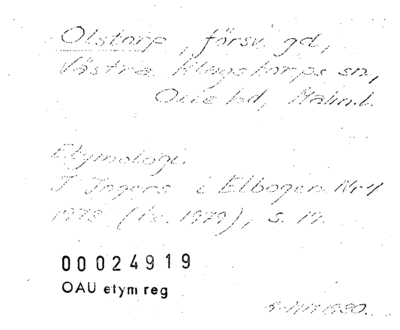 Olstorp, försv. gd,
Västra Klagstorps sn,
Oxie hd, Malm.l.
Etymologi.
I Ingers i Elbogen Nr 4
1978 (tr. 1979), s. 19.
00024919
OAU etym reg
1980.